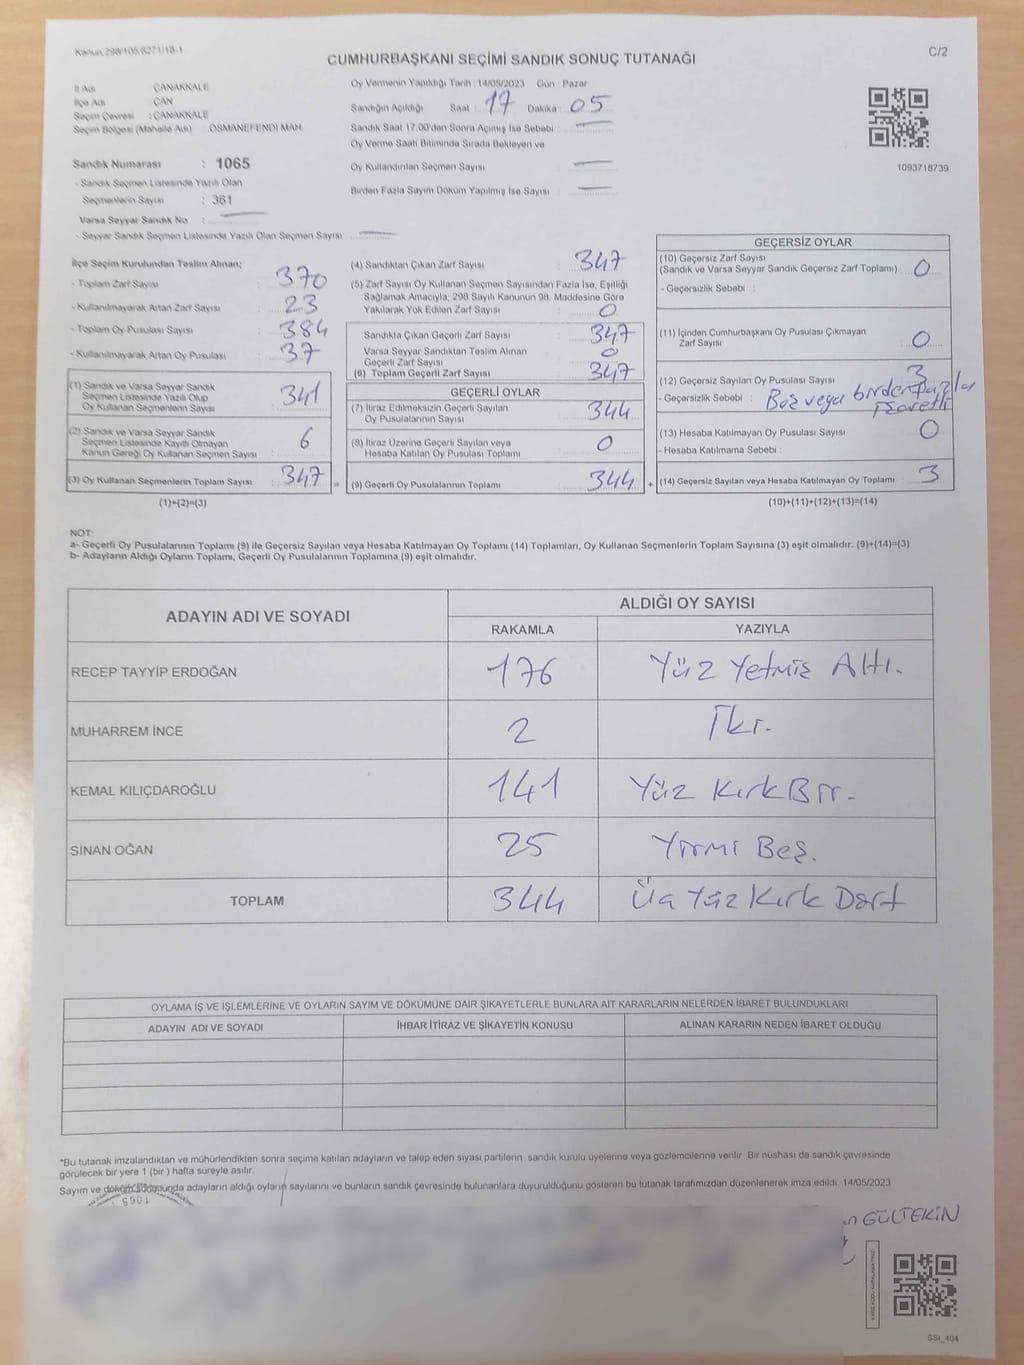 Kanun 298/105,6271/18-1
C/2
CUMHURBAŞKANI SEÇİMİ SANDIK SONUÇ TUTANAĞI
İl Adı ÇANAKKALE
İlçe Adı ÇAN
Seçim Çevresi : ÇANAKKALE
Seçim Bölgesi (Mahalle Adı) OSMANEFENDİ MAH.
Sandık Numarası : 1065
- Sandık Seçmen Listesinde Yazılı Olan
Seçmenlerin Sayısı : 361
Varsa Seyyar Sandık No :
- Seyyar Sandık Seçmen Listesinde Yazılı Olan Seçmen Sayısı
Oy Vermenin Yapıldığı Tarih : 14/05/2023 Gün : Pazar
Sandığın Açıldığı Saat : 17 Dakika : 05
Sandık Saat 17:00'den Sonra Açımış İse Sebebi :
Oy Verme Saati Bitiminde Sırada Bekleyen ve
Oy Kullandırılan Seçmen Sayısı
Birden Fazla Sayım Döküm Yapılmış İse Sayısı
1093718739
İlçe Seçim Kurulundan Teslim Alınan;
- Toplam Zarf Sayısı : 370
- Kullanılmayarak Artan Zarf Sayısı : 23
- Toplam Oy Pusulası Sayısı : 384
- Kullanılmayarak Artan Oy Pusulası : 37
(1) Sandık ve Varsa Seyyar Sandık
Seçmen Listesinde Yazılı Olup
Oy Kullanan Seçmenlerin Sayısı : 341
(2) Sandık ve Varsa Seyyar Sandık
Seçmen Listesinde Kayıtlı Olmayan
Kanun Gereği Oy Kullanan Seçmen Sayısı : 6
(3) Oy Kullanan Seçmenlerin Toplam Sayısı : 347 =
(1)+(2)=(3)
(4) Sandıktan Çıkan Zarf Sayısı : 347
(5) Zarf Sayısı Oy Kullanan Seçmen Sayısından Fazla İse, Eşitliği
Sağlamak Amacıyla, 298 Sayılı Kanunun 98. Maddesine Göre
Yakılarak Yok Edilen Zarf Sayısı : 0
Sandıkta Çıkan Geçerli Zarf Sayısı : 347
Varsa Seyyar Sandıktan Teslim Alınan
Geçerli Zarf Sayısı : 0
(6) Toplam Geçerli Zarf Sayısı : 347
GEÇERLİ OYLAR
(7) İtiraz Edilmeksizin Geçerli Sayılan
Oy Pusulalarının Sayısı : 344
(8) İtiraz Üzerine Geçerli Sayılan veya
Hesaba Katılan Oy Pusulası Toplamı : 0
(9) Geçerli Oy Pusulalarının Toplamı : 344 +
GEÇERSİZ OYLAR
(10) Geçersiz Zarf Sayısı
(Sandık ve Varsa Seyyar Sandık Geçersiz Zarf Toplamı) : 0
- Geçersizlik Sebebi :
(11) İçinden Cumhurbaşkanı Oy Pusulası Çıkmayan
Zarf Sayısı : 0
(12) Geçersiz Sayılan Oy Pusulası Sayısı : 3
- Geçersizlik Sebebi : Boş veya birden fazla
işaretli
(13) Hesaba Katılmayan Oy Pusulası Sayısı : 0
- Hesaba Katılmama Sebebi :
(14) Geçersiz Sayılan veya Hesaba Katılmayan Oy Toplamı : 3
(10)+(11)+(12)+(13)=(14)
NOT:
a- Geçerli Oy Pusulalarının Toplamı (9) ile Geçersiz Sayılan veya Hesaba Katılmayan Oy Toplamı (14) Toplamları, Oy Kullanan Seçmenlerin Toplam Sayısına (3) eşit olmalıdır. (9)+(14)=(3)
b- Adayların Aldığı Oyların Toplamı, Geçerli Oy Pusulalarının Toplamına (9) eşit olmalıdır.
ADAYIN ADI VE SOYADI ALDIĞI OY SAYISI
RAKAMLA YAZIYLA
RECEP TAYYİP ERDOĞAN 176 Yüz Yetmiş Altı.
MUHARREM İNCE 2 İki.
KEMAL KILIÇDAROĞLU 141 Yüz Kırk Bir.
SİNAN OĞAN 25 Yirmi Beş.
TOPLAM 344 Üç Yüz Kırk Dört
OYLAMA İŞ VE İŞLEMLERİNE VE OYLARIN SAYIM VE DÖKÜMÜNE DAİR ŞİKAYETLERLE BUNLARA AİT KARARLARIN NELERDEN İBARET BULUNDUKLARI
ADAYIN ADI VE SOYADI İHBAR İTİRAZ VE ŞİKAYETİN KONUSU ALINAN KARARIN NEDEN İBARET OLDUĞU
*Bu tutanak imzalandıktan ve mühürlendikten sonra seçime katılan adayların ve talep eden siyasi partilerin sandık kurulu üyelerine veya gözlemcilerine verilir. Bir nüshası da sandık çevresinde
görülecek bir yere 1 (bir) hafta süreyle asılır.
Sayım ve döküm sonucunda adayların aldığı oyların sayılarını ve bunların sandık çevresinde bulunanlara duyurulduğunu gösteren bu tutanak tarafımızdan düzenlenerek imza edildi. 14/05/2023
1065
GÜLTEKİN
SSİ_404